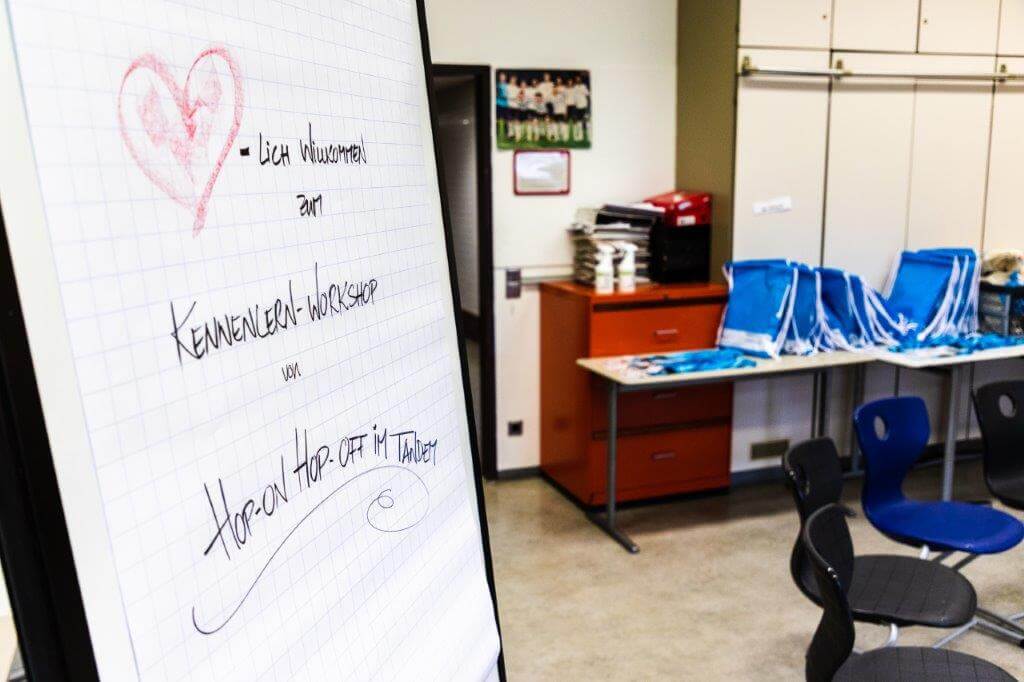 - LICH WILLKOMMEN
ZUM
KENNENLERN-WORKSHOP
VON
HOP-ON HOP-OFF IM TANDEM